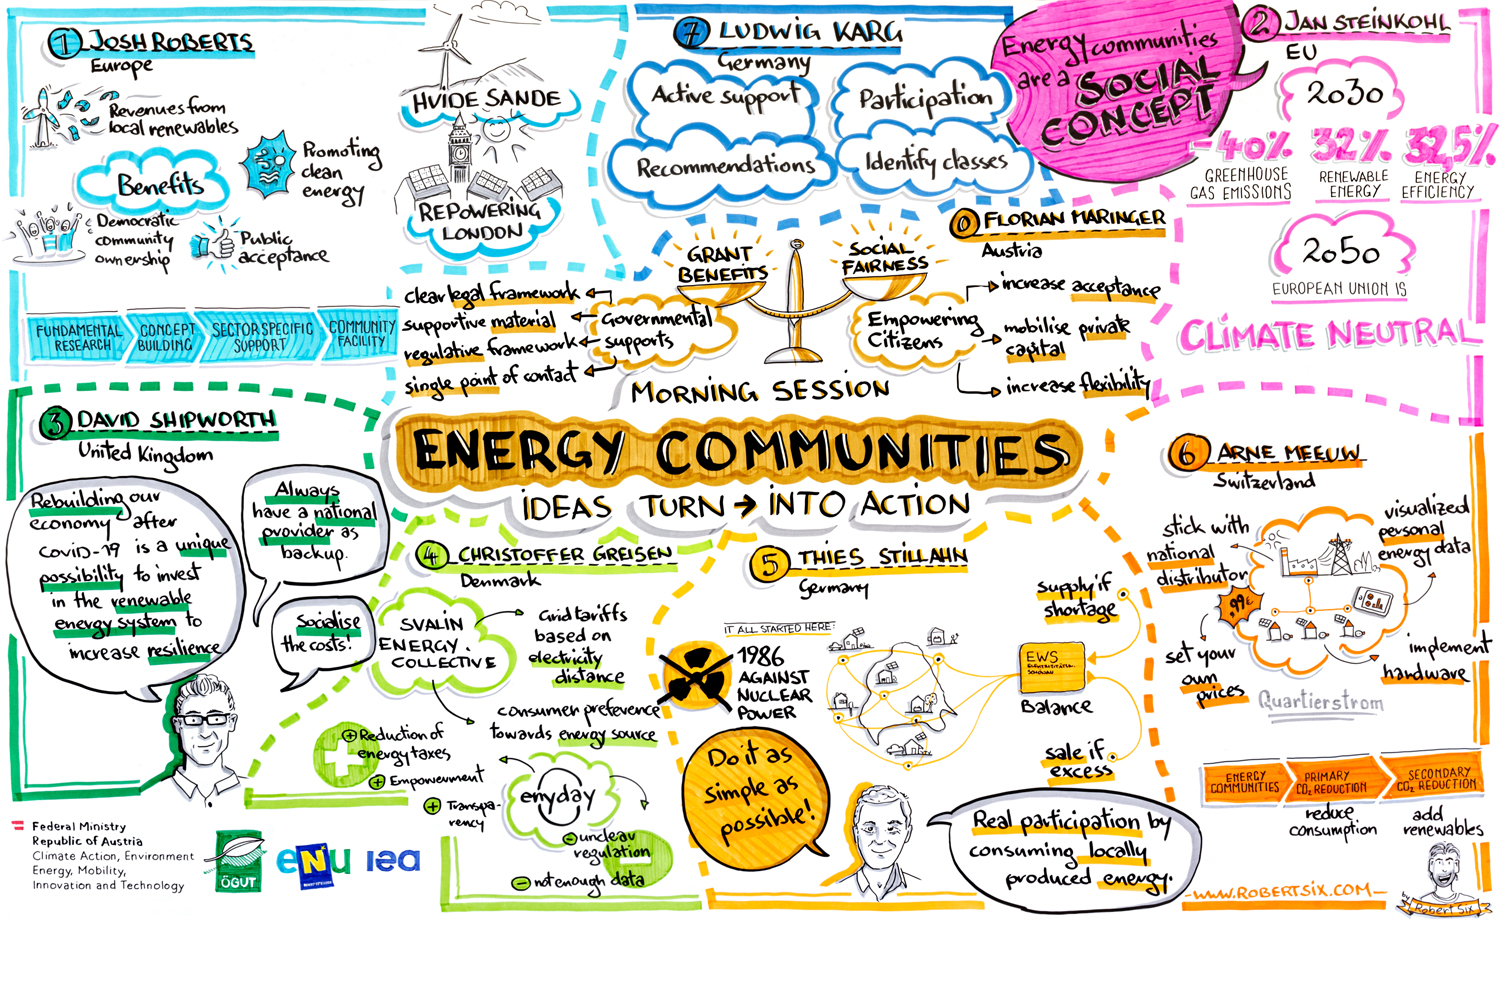 1 JOSH ROBERTS
Europe
Revenues from
local renewables
Benefits
Promoting
clean
energy
Democratic
community
ownership
Public
acceptance
FUNDAMENTAL
RESEARCH
CONCEPT
BUILDING
SECTOR SPECIFIC
SUPPORT
COMMUNITY
FACILITY
HVIDE SANDE
REPOWERING
LONDON
7 LUDWIG KARG
Germany
Active support
Participation
Recommendations
Identify classes
Energy communities
are a SOCIAL
CONCEPT
2 JAN STEINKOHL
EU
2030
-40% 32% 32,5%
GREENHOUSE
GAS EMISSIONS
RENEWABLE
ENERGY
ENERGY
EFFICIENCY
2050
EUROPEAN UNION IS
CLIMATE NEUTRAL
0 FLORIAN MARINGER
Austria
GRANT
BENEFITS
SOCIAL
FAIRNESS
clear legal framework
supportive material
regulative framework
single point of contact
Governmental
supports
Empowering
Citizens
increase acceptance
mobilise private
capital
increase flexibility
MORNING SESSION
ENERGY COMMUNITIES
IDEAS TURN → INTO ACTION
3 DAVID SHIPWORTH
United Kingdom
Rebuilding our
economy after
COVID-19 is a unique
possibility to invest
in the renewable
energy system to
increase resilience
Always
have a national
provider as
backup.
Socialise
the costs!
4 CHRISTOFFER GREISEN
Denmark
SVALIN
ENERGY
COLLECTIVE
Grid tariffs
based on
electricity
distance
consumer preference
towards energy source
+ Reduction of
energy taxes
+ Empowerment
+ Transpa-
rency
enyday
- unclear
regulation
- not enough data
5 THIES STILLAHN
Germany
IT ALL STARTED HERE:
1986
AGAINST
NUCLEAR
POWER
supply if
shortage
EWS
Balance
sale if
excess
Do it as
simple as
possible!
Real participation by
consuming locally
produced energy.
6 ARNE MEEUW
Switzerland
stick with
national
distributor
visualized
personal
energy data
,99€
set your
own
prices
implement
hardware
Quartierstrom
ENERGY
COMMUNITIES
PRIMARY
CO₂ REDUCTION
SECONDARY
CO₂ REDUCTION
reduce
consumption
add
renewables
-www.ROBERTSIX.COM-
Robert Six
Federal Ministry
Republic of Austria
Climate Action, Environment
Energy, Mobility,
Innovation and Technology
ÖGUT
eNu
iea